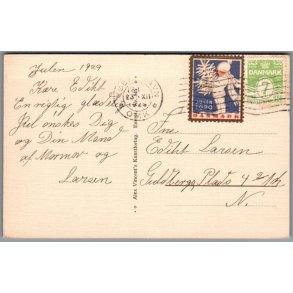 Julen 1929
Kære Edith
En rigtig glædelig
Jul ønskes Dig
og Din Mand
af Mormor og
Larsen
Fru
Edith Larsen
Guldbergs Plads 4
N.
JULEN
1929
DANMARK
DANMARK
7
OMK
Alex Vincent's Kunstforlag